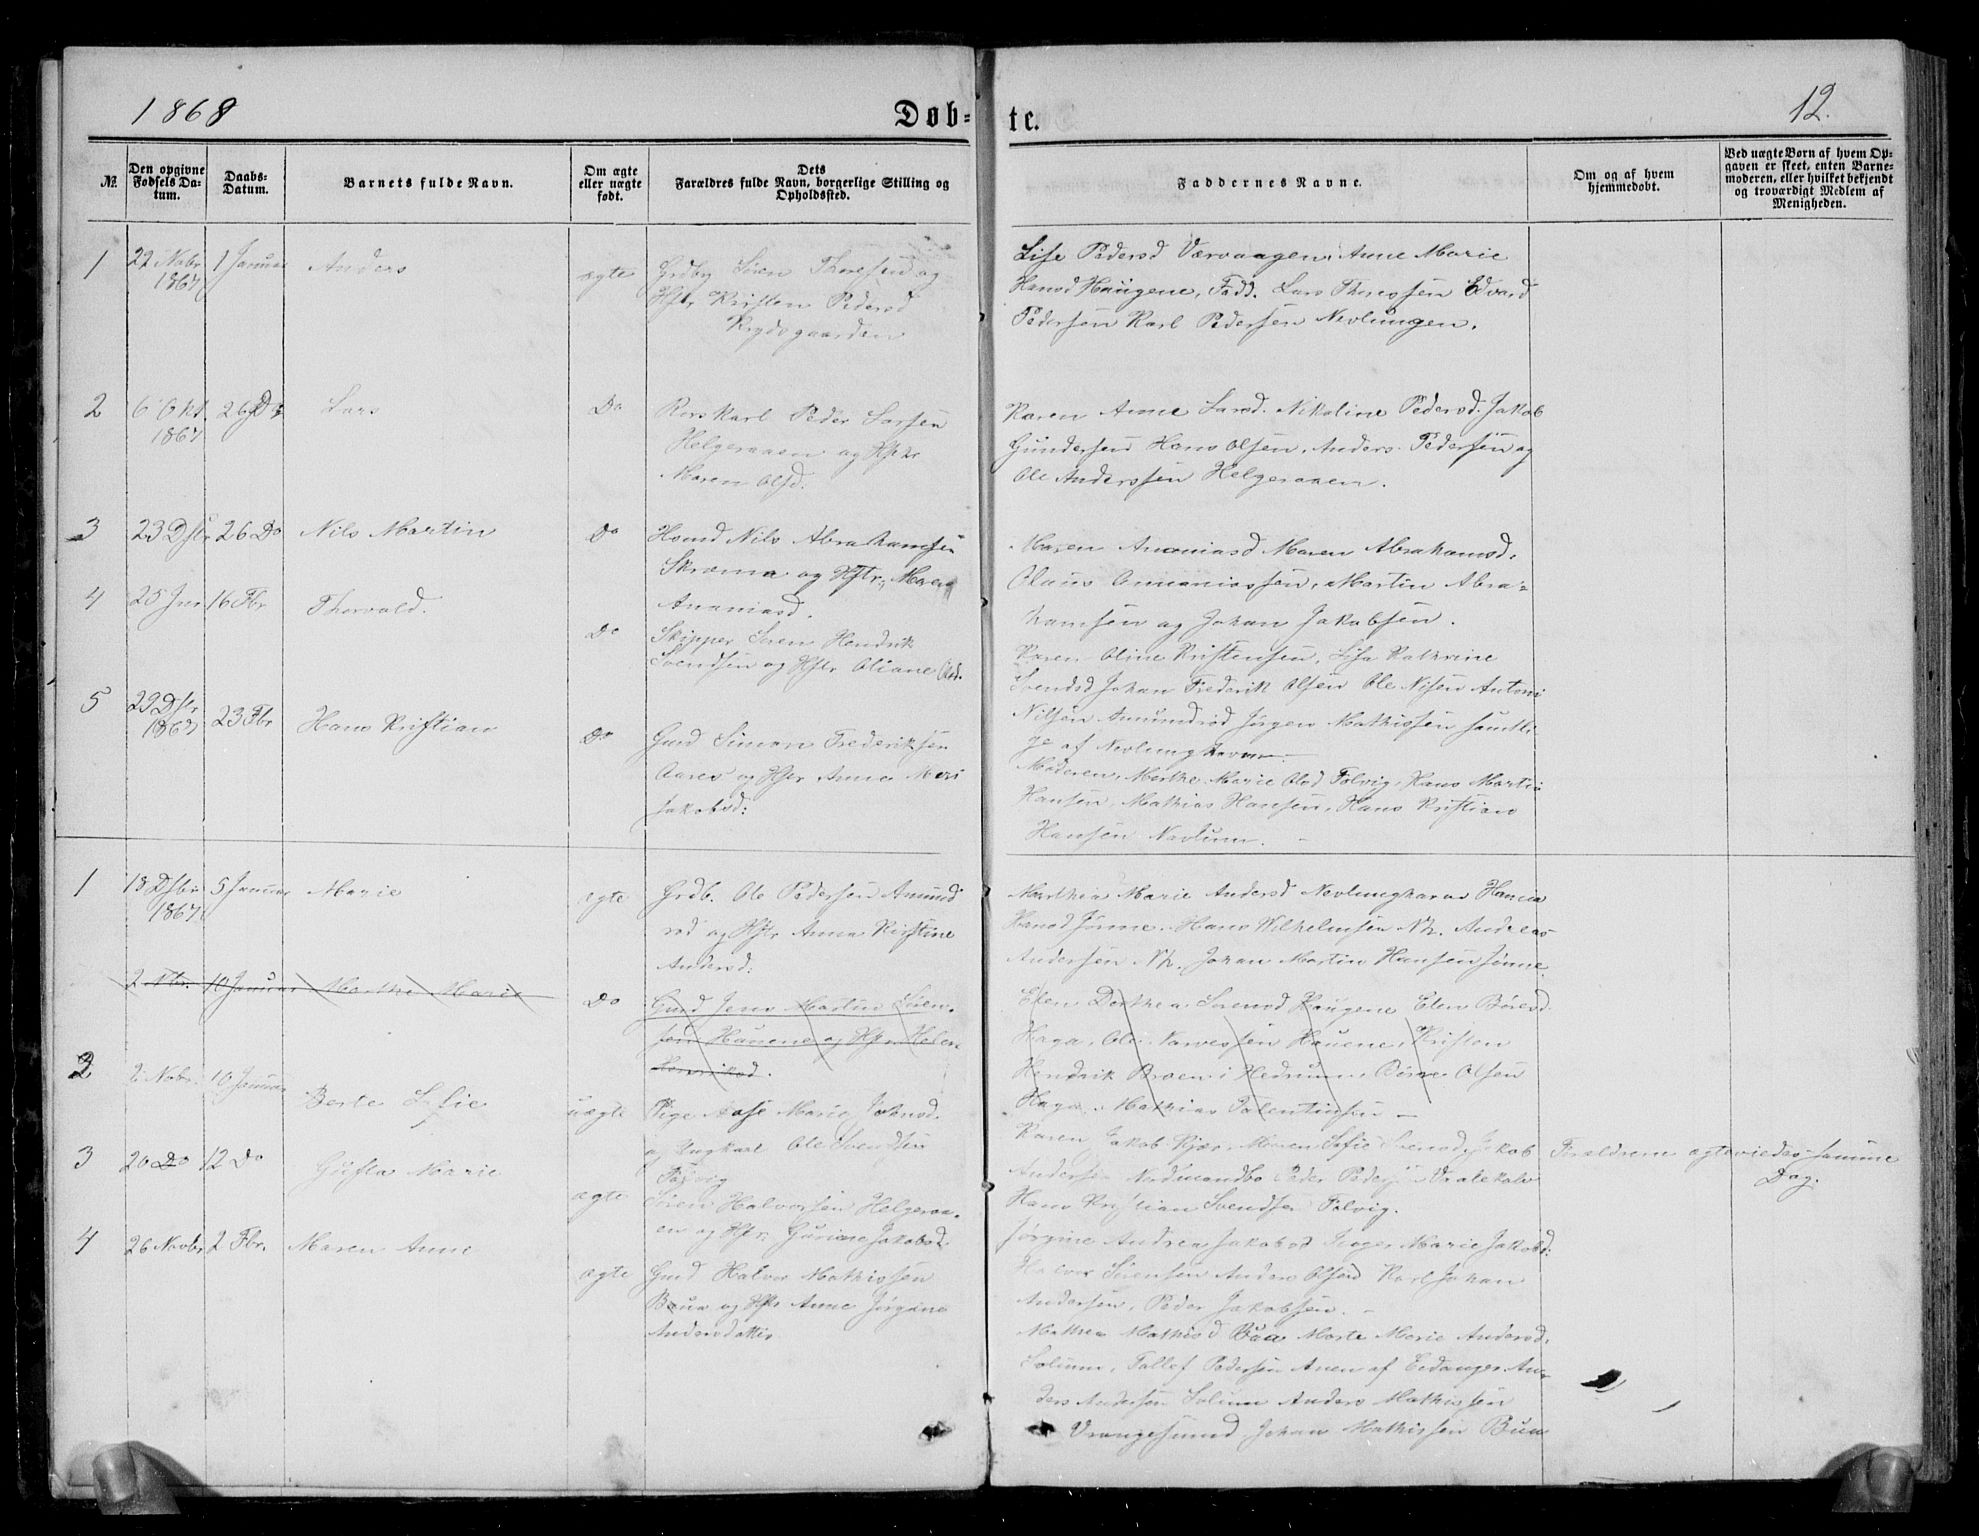 1868
Døb-
te.
12.
№
Den opgivne
Fødsels Da-
tum.
Daabs-
Datum.
Barnets fulde Navn.
Om ægte
eller uægte
født.
Dets
Forældres fulde Navn, borgerlige Stilling og
Opholdssted.
Faddernes Navne.
Om og af hvem
hjemmedøbt.
Ved uægte Børn af hvem Op-
gaven er skeet, enten Barne-
moderen, eller hvilket bekjendt
og troværdigt Medlem af
Menigheden.
1
22 Nobr
1867
1 Januar
Anders
ægte
Grdbr Søren Thoresen og
Hstr Kristen Pedersd
Rydsgaarden
Lise Pedersd Værvaagen, Anne Marie
Hansd Haugene, Fadd. Lars Thoressen Edvard
Pedersen Karl Pedersen Nevlungen.
2
6 Okt
1867
26 Do
Lars
Do
Karl Peder Larsen
Helgeraaen og Hstr
Maren Olsd.
Karen Anne Larsd. Nikoline Pedersd. Jakob
Gundersen Hans Olsen, Anders Pedersen og
Ole Anderssen Helgeraaen.
3
23 Dsbr
26 Do
Nils Martin
Do
Hsmd Nils Abrahamsen
og Hstr. Maren
Ananiasd.
Maren Ananiasd Maren Abrahamsd.
Olaus Annaniassen, Martin Abra-
hamsen og Johan Jakobsen.
4
25 Jnr
16 Fbr
Thorvald.
Do
Skipper Søren Hendrik
Svendsen og Hstr Oliane Olsd.
Karen Oline Kristensen, Lisa Kathrine
Svendsd Johan Frederik Olsen Ole Nilsen Antoni
Nilsen Amundrød Jørgen Mathissen samtli-
ge af Nevlunghavn
5
29 Dsbr
1867
23 Fbr
Hans Kristian
Do
Gmd Simon Frederiksen
Aaros og Hstr Anne Mari
Jakobsd:
Moderen, Marthe Marie Olsd Folvig, Hans Martin
Hansen, Mathias Hansen, Hans Kristian
Hansen Nevlun.
1
18 Dsbr
1867
5 Januar
Marie
ægte
Grdb. Ole Pedersen Amund
rød og Hstr Anna Kristine
Andersd:
Marthea Marie Andersd Nevlunghavn Hanna
Hansd Jønne. Hans Wilhelmsen Nh. Andreas
Andersen Nh. Johan Martin Hansen Jønne
2 Nbr.
10 Januar
Marthe Marie
Do
Gmd Jens Martin Sören-
sen Hauene og Hstr Helene
Henriksd.
Elen Dorthea Sørensd Haugene Elen Børesd
Haga, Ole Narvessen Hauene, Kristen
Hendrik Braen i Hedrum, Børre Olsen
Haga. Mathias Valentinsen
2
2 Nobr.
10 Januar
Berte Sofie
uægte
Pige Aase Marie Johnsd.
og Ungkarl Ole Svendsen
Folvig
Karen Jakob. Kjær, Maren Sofie Svensd, Jakob
Andersen Nordmandbo Peder Peder Vralekolv
Hans Kristian Svendsen Folvig.
Forældrene ægteviedes samme
Dag.
3
20 Do
12 Do
Gusta Marie
ægte
Søren Halvorsen Helgeraa-
en og Hstr. Guriane Jakobsd
Jørgine Andrea Jakobsd Marie Jakobsd:
Halvor Sørensen Anders Olsen Karl Johan
Andersen, Peder Jakobsen.
4
26 Novbr
2 Fbr.
Maren Anne
ægte
Gmd Halvor Mathissen
Bua og Hstr Anne Jørgine
Andersdatter
Mathea Mathisd Bua Marte Marie Andersd.
Solum, Tallef Pedersen Anen af Eidanger An-
ders Andersen Solum Anders Mathissen
Vrangesund Johan Mathissen Bua